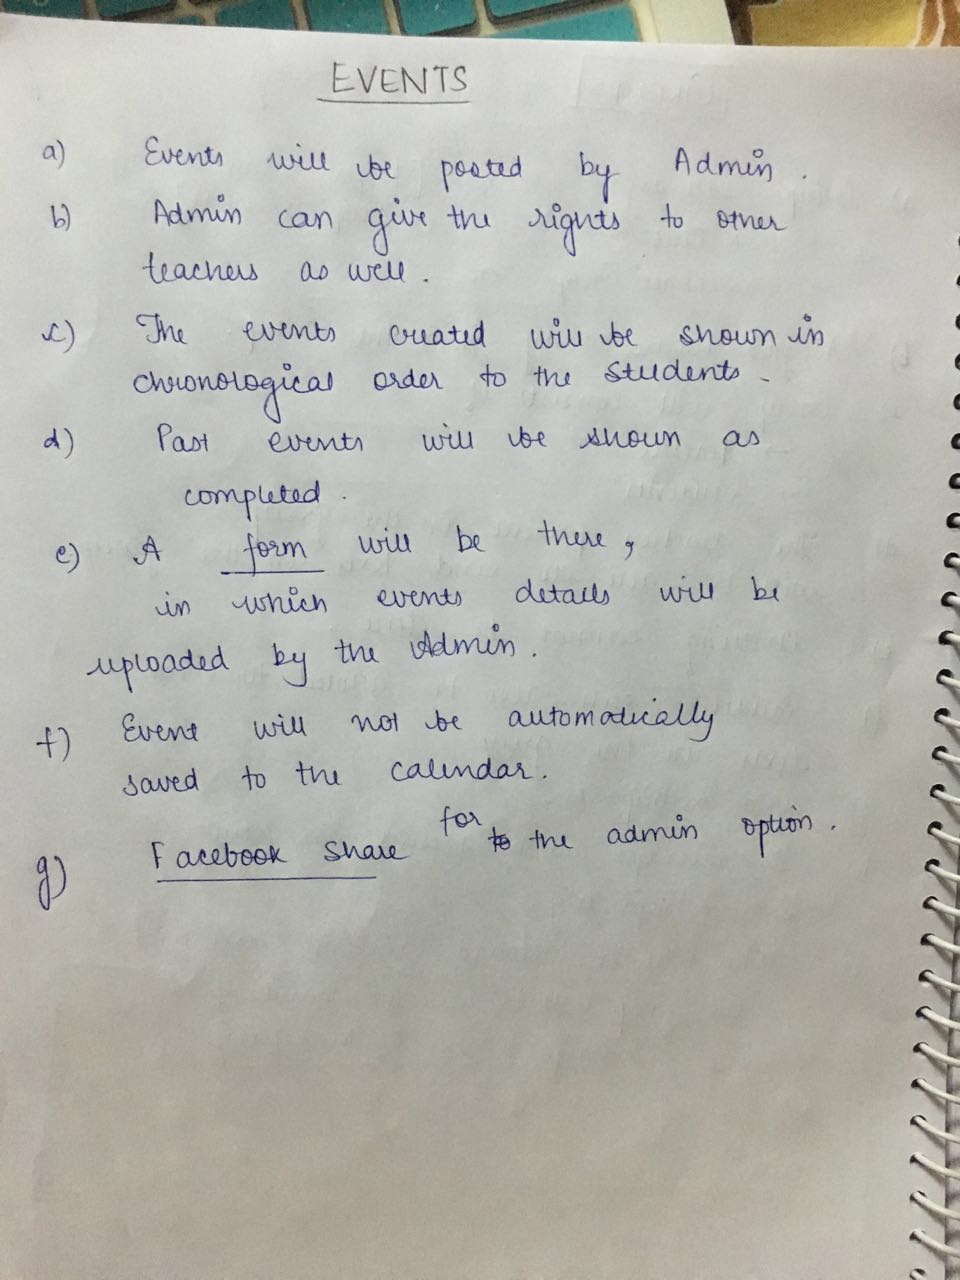 EVENTS
a) Events will be posted by Admin.
b) Admin can give the rights to other
teachers as well.
c) The events created will be shown in
chronological order to the students.
d) Past events will be shown as
completed.
e) A form will be there,
in which events details will be
uploaded by the Admin.
f) Event will not be automatically
saved to the calendar.
g) Facebook share for the admin option.